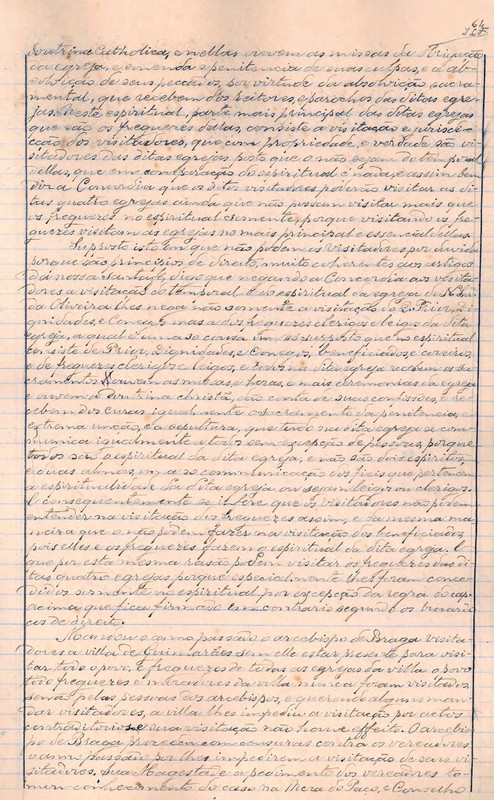 64
doutrina catholica, e nellas ouvem as missas da obrigação
da egreja, e emenda e penitencia de suas culpas, e a ab-
solvição de seus peccados, por virtude da absolvição sacra-
mental, que recebem dos reitores, e parochos das ditas egre-
jas. Neste espiritual, parte mais principal das ditas egrejas
que são os freguezes dellas, consiste a visitação e jurisdi-
cção dos visitadores, que com propriedade, e verdade são vi-
sitadores das ditas egrejas posto que o não sejam do temporal
dellas, que em comparação do espiritual é nada, e assim bem
diz a Concordia que os ditos visitadores poderão visitar as di-
tas quatro egrejas ainda que não possam visitar mais que
os freguezes no espiritual somente, porque visitando os fre-
guezes visitam as egrejas no mais principal e essencial dellas.
Supposto isto em que não podem os visitadores pôr duvida
porque são principios de direito, muito coherentes aos artigos
da nossa santa fé, digo que negando a Concordia aos visita-
dores a visitação do temporal e do espiritual da egreja de N. Snrª
da Oliveira lhes nega não somente a visitação do D. Prior, Di-
gnidades, e Conegos mas a dos freguezes clerigos e leigos da dita
egreja, a qual é uma só cousa em seu supposto que no espiritual
consiste de Prior, Dignidades, e Conegos, beneficiados, e coreiros,
e de freguezes clerigos e leigos, e todos na dita egreja recebem os sa-
cramentos, ouvem as missas e horas, e mais ceremonias da egreja
e ouvem a doutrina christã, dão conta de suas confissões, e re-
cebem dos curas igualmente o sacramento da penitencia, e
extrema unção, e da sepultura, que tudo na dita egreja se com-
munica igualmente a todos sem excepção de pessoas, porque
todos são o espiritual da dita egreja, e não são dois espiritos,
e duas almas, na communicação dos fieis que pertencem
a espiritualidade da dita egreja ou sejam leigos ou clerigos.
E consequentemente se infere que os visitadores não podem
entender na visitação dos freguezes assim, e da mesma ma-
neira que o não podem fazer na visitação dos beneficiados,
pois elles e os freguezes fazem o espiritual da dita egreja. E
que por esta mesma rasão podem visitar os freguezes das di-
tas quatro egrejas porque especialmente lhes foram conce-
didos somente no espiritual por excepção da regra do cap.
acima, que fica firmado em contrario segundo os
de direito.
Mandou o anno passado o arcebispo de Braga visita-
dores a villa de Guimarães sem elle estar presente, para visi-
tar todo o povo, e freguezes de todas as egrejas da villa, o povo
todo freguezes e moradores da villa nunca foram visitados,
senão pelas pessoas dos arcebispos, e querendo alguns man-
dar visitadores, a villa lhes impediu a visitação por actos
contradictorios e sua visitação não houve effeito. O arcebis-
po de Braga procedeu com censuras contra os vereadores
o anno passado por lhes impedirem a visitação de seus vi-
sitadores. Sua Magestade a pedimento dos vereadores to-
mou conhecimento do caso na Meza do Paço, e Conselho